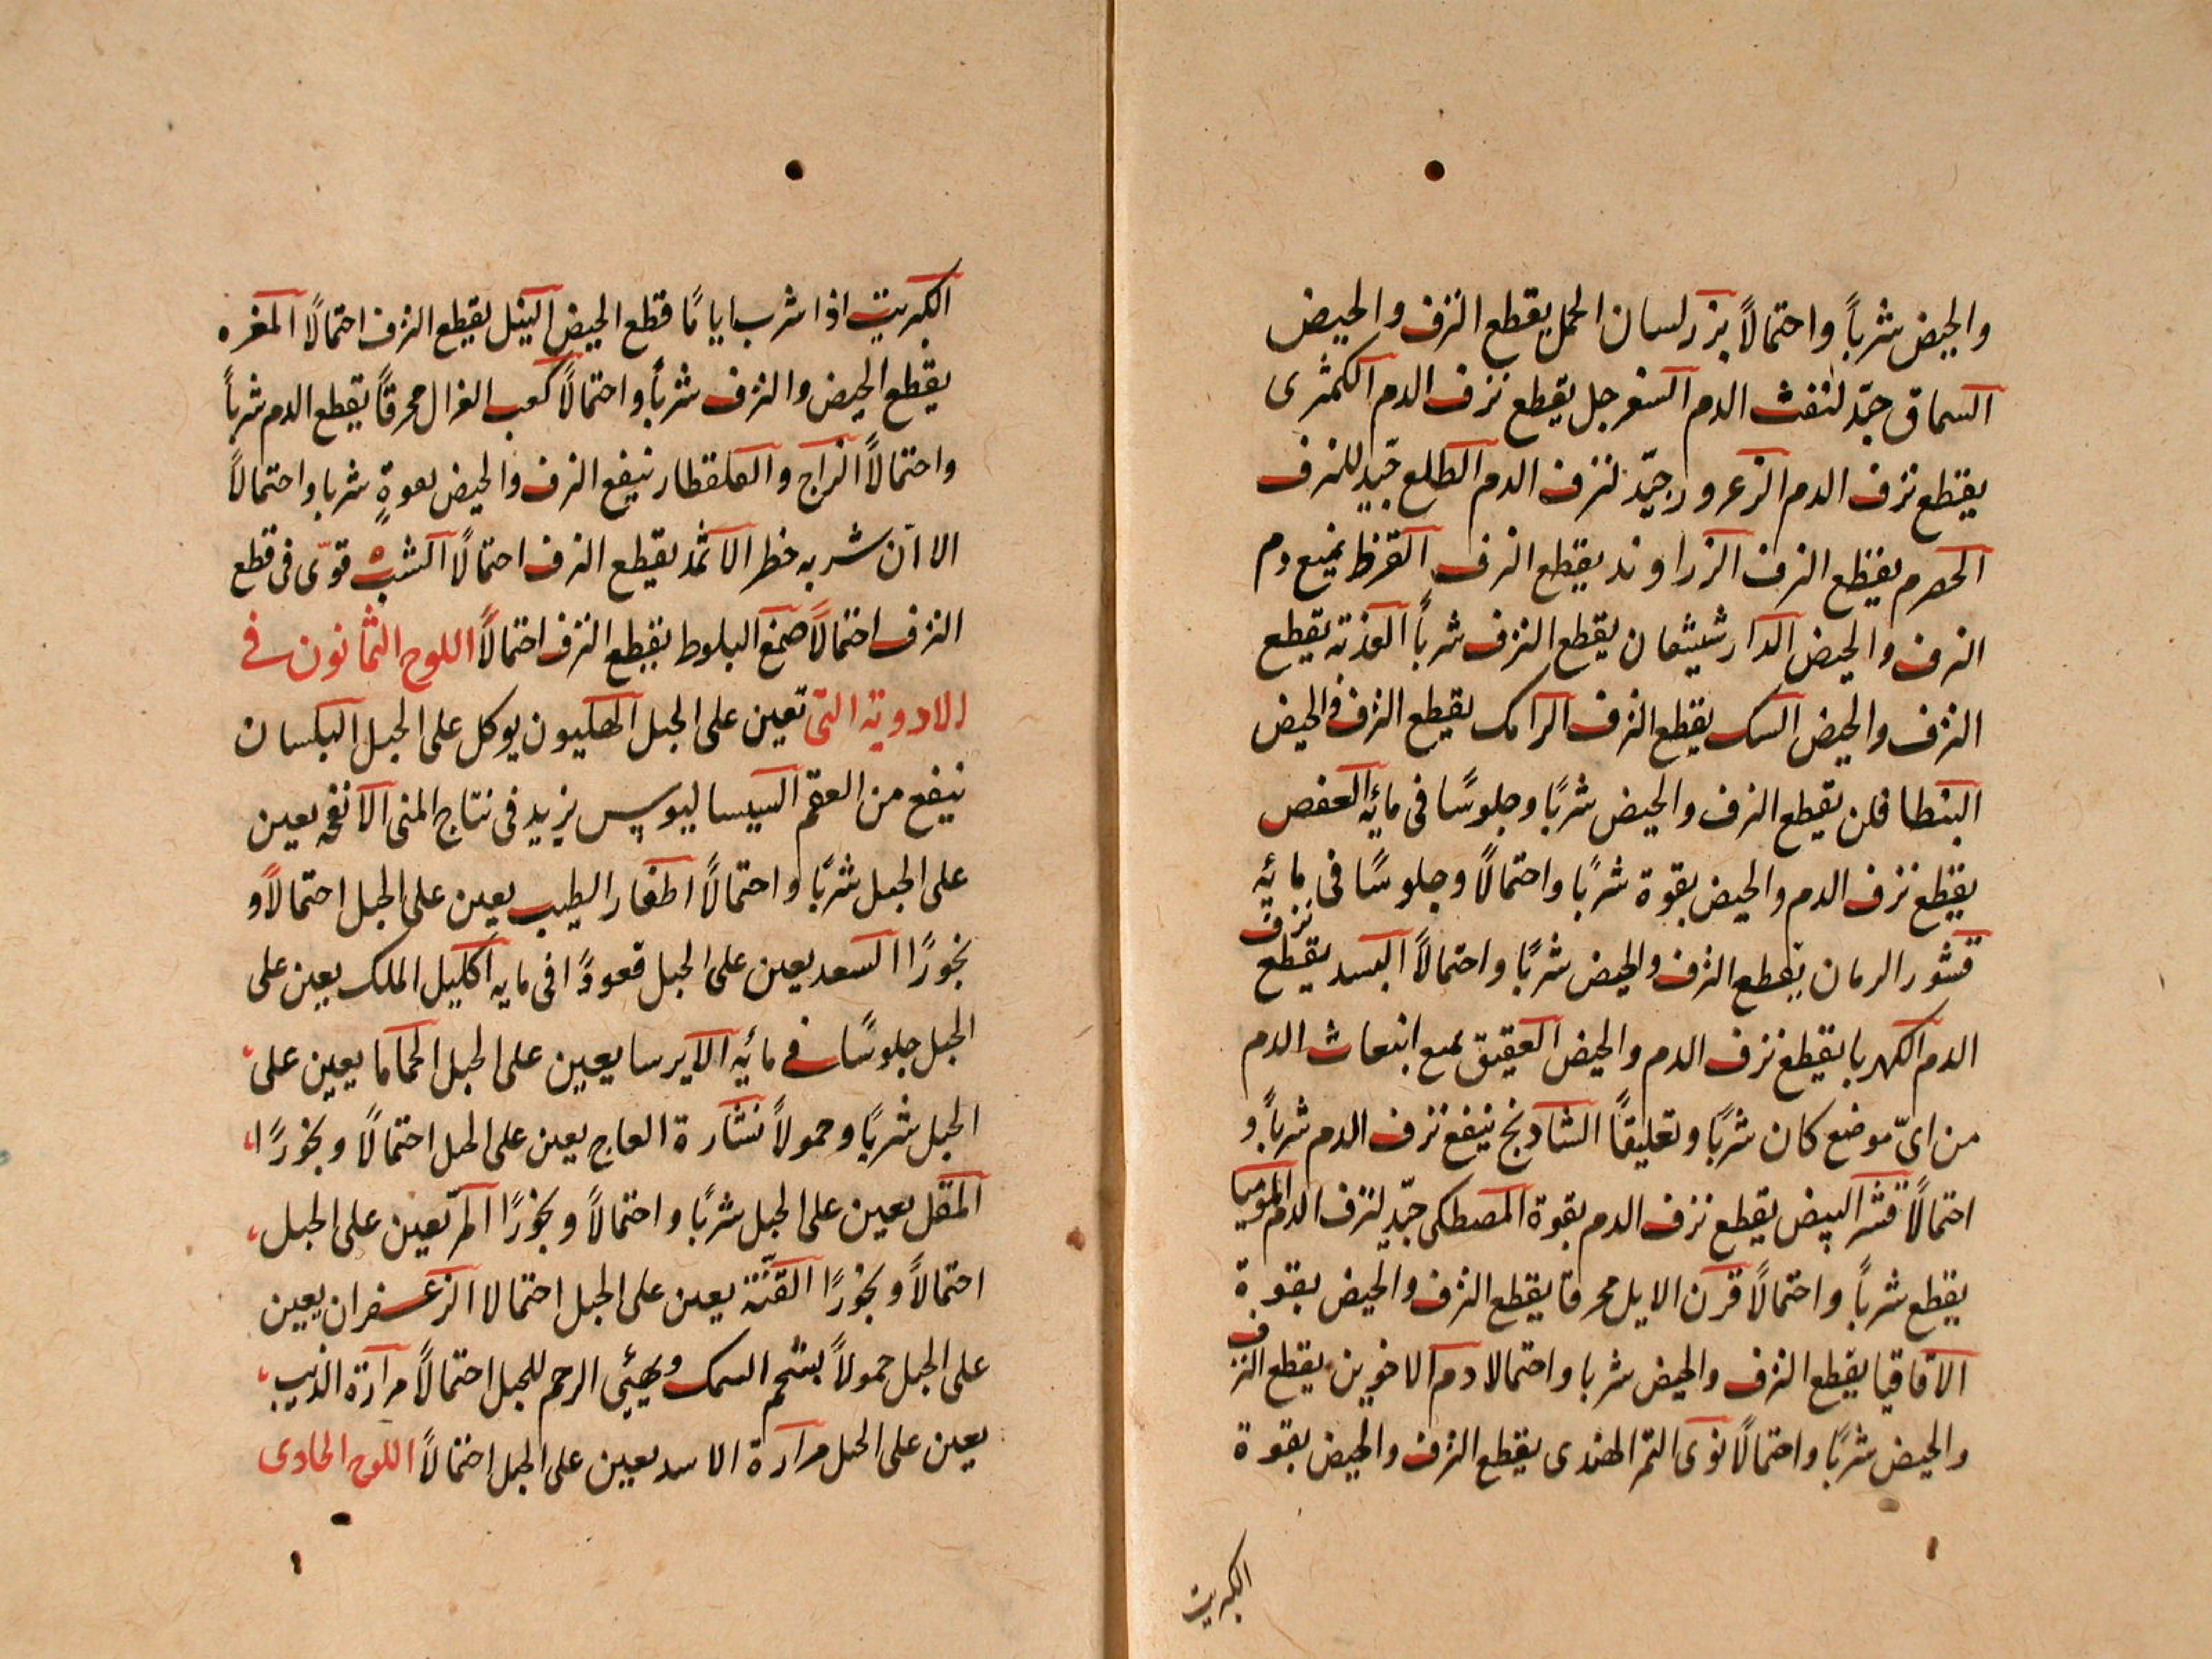 والحيض شرباً واحتمالاً بزر لسان الحمل يقطع النزف والحيض
السماق جيّد لنفث الدم السفرجل يقطع نزف الدم الكمثرى
يقطع نزف الدم الزعرور جيّد لنزف الدم الطلع جيّد للنزف
الحصرم يقطع النزف الزراوند يقطع النزف القرظ يمنع دم
النزف والحيض الدارشيشعان يقطع النزف شرباً يقطع
النزف والحيض السك يقطع النزف الرامك يقطع النزف والحيض
البنطافلن يقطع النزف والحيض شربًا وجلوسًا فى مائه العفص
يقطع نزف الدم والحيض بقوة شربًا واحتمالاً وجلوسًا فى مائه
قشور الرمان يقطع النزف والحيض شربًا واحتمالاً البسد يقطع نزف
الدم الكهربا يقطع نزف الدم والحيض العقيق يمنع انبعاث الدم
من اىّ موضع كان شربًا وتعليقًا الشادنج ينفع نزف الدم شرباً و
احتمالاً قشر البيض يقطع نزف الدم بقوة المصطكى جيّد لنزف الدم الموميا
يقطع شرباً واحتمالاً قرن الايل محرقا يقطع النزف والحيض بقوة
الاقاقيا يقطع النزف والحيض شربا واحتمالا دم الاخوين يقطع النزف
والحيض شربًا واحتمالاً نوى التمر الهندى يقطع النزف والحيض بقوة
الكبريت
الكبريت اذا شرب ايامًا قطع الحيض النيل يقطع النزف احتمالاً المغره
يقطع الحيض والنزف شرباً واحتمالاً كعب الغزال محرقاً يقطع الدم شرباً
واحتمالاً الزاج والقلقطار ينفع النزف والحيض بقوةٍ شربا واحتمالاً
الا انّ شربه خطر الاثمد يقطع النزف احتمالاً الشب قوىّ فى قطع
النزف احتمالاً صمغ البلوط يقطع النزف احتمالاً اللوح الثمانون فى
الادوية التى تعين على الحبل الهليون يوكل على الحبل البلسان
ينفع من العقم السيساليوس يزيد فى نتاج المنى الانفحه يعين
على الحبل شربًا واحتمالاً اظفار الطيب يعين على الحبل احتمالاً و
بخورًا السعد يعين على الحبل قعودًا فى مايه اكليل الملك يعين على
الحبل جلوسًا فى مائيه الايرسا يعين على الحبل الحماما يعين على
الحبل شربًا وحمولاً نشارة العاج يعين على الحبل احتمالاً وبخورًا
المقل يعين على الحبل شربًا واحتمالاً وبخورًا المرّ تعين على الحبل
احتمالاً وبخورًا القنّة يعين على الحبل احتمالا الزعفران يعين
على الحبل حمولاً شحم السمك ويهيّى الرحم للحبل احتمالاً مرارة الذيب
يعين على الحبل مرارة الاسد يعين على الحبل احتمالاً اللوح الحادى